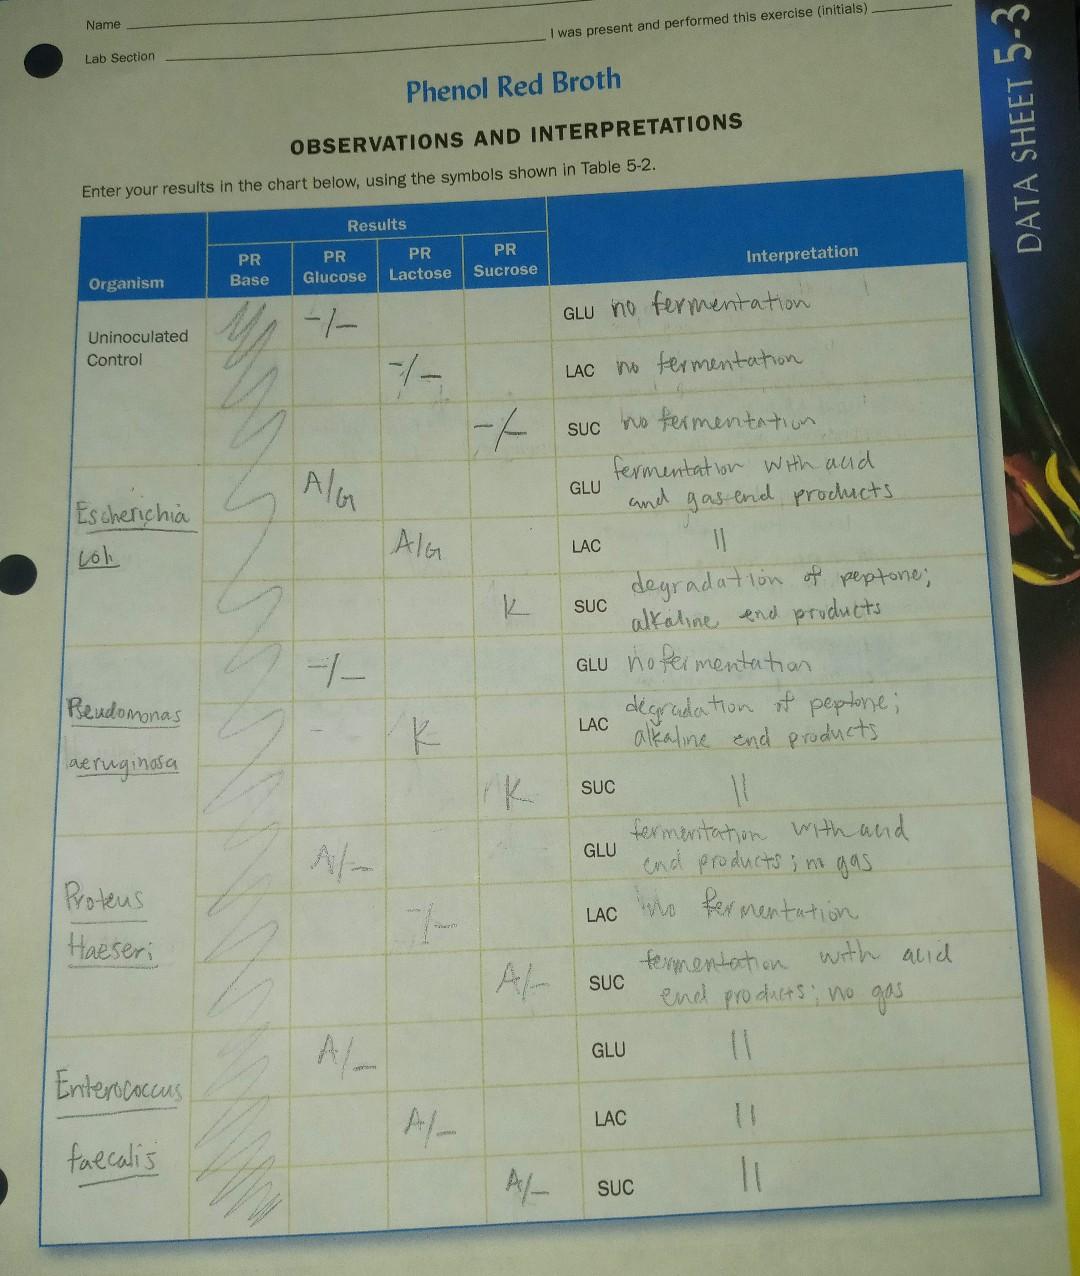 Name
I was present and performed this exercise (initials)
Lab Section
DATA SHEET 5-3
Phenol Red Broth
OBSERVATIONS AND INTERPRETATIONS
Enter your results in the chart below, using the symbols shown in Table 5-2.
Results
Organism
PR Base
PR Glucose
PR Lactose
PR Sucrose
Interpretation
Uninoculated
Control
-/-
GLU no fermentation
-/-
LAC no fermentation
-/-
SUC no fermentation
Escherichia
coli
A/G
GLU fermentation with acid
and gas end products
A/G
LAC "
K
SUC degradation of peptone;
alkaline end products
Pseudomonas
aeruginosa
-/-
GLU no fermentation
K
LAC degradation of peptone;
alkaline end products
K
SUC "
Proteus
Haeseri
A/-
GLU fermentation with acid
end products; no gas
-/-
LAC no fermentation
A/-
SUC fermentation with acid
end products; no gas
Enterococcus
faecalis
A/-
GLU "
A/-
LAC "
A/-
SUC "